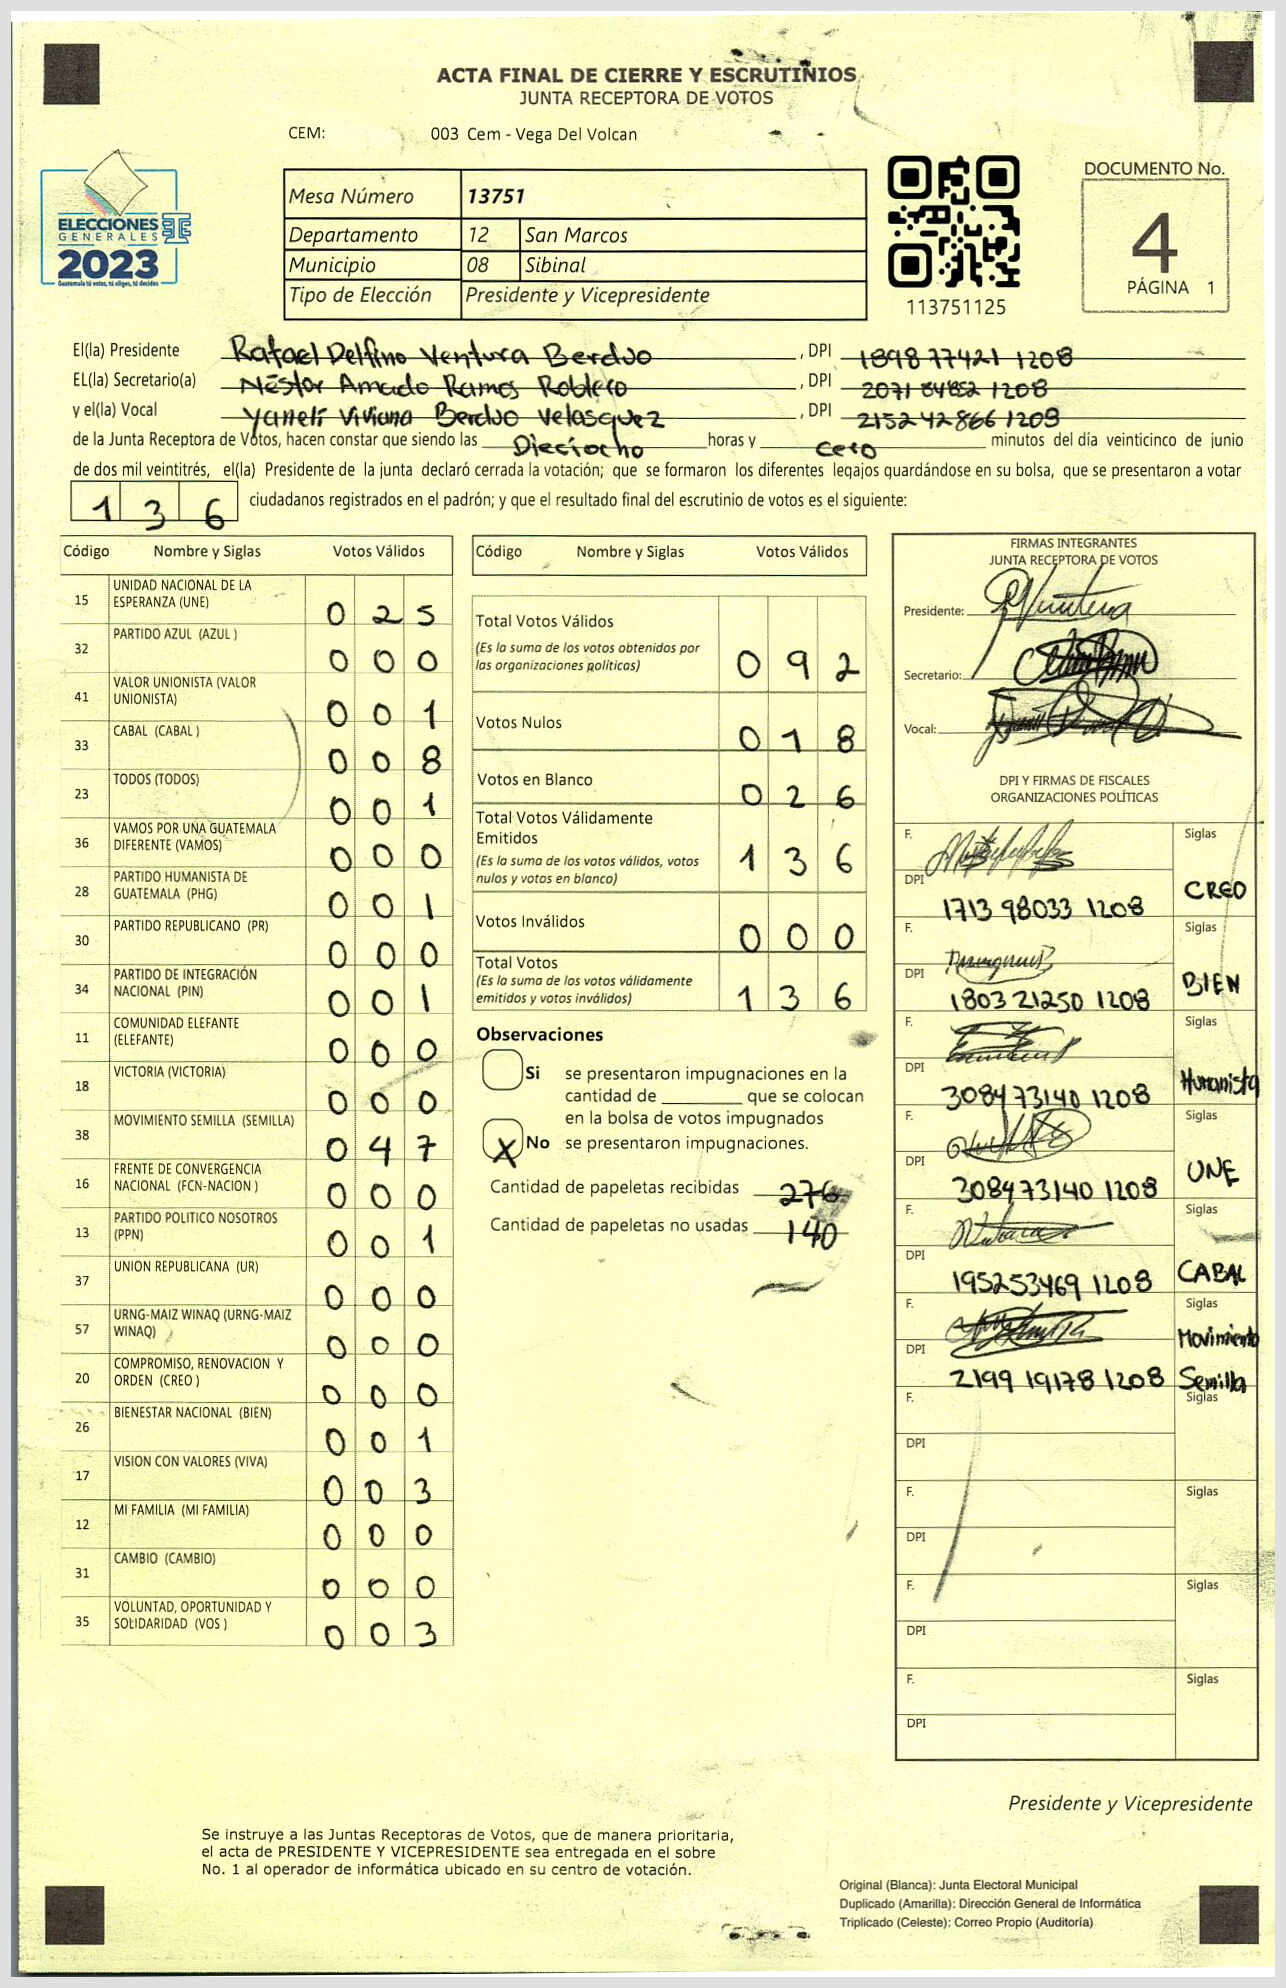 ACTA FINAL DE CIERRE Y ESCRUTINIOS
JUNTA RECEPTORA DE VOTOS
CEM: 003 Cem - Vega Del Volcan
ELECCIONES
GENERALES
2023
Guatemala tú votas, tú eliges, tú decides
Mesa Número 13751
Departamento 12 San Marcos
Municipio 08 Sibinal
Tipo de Elección Presidente y Vicepresidente
113751125
DOCUMENTO No.
4
PÁGINA 1
El(la) Presidente Rafael Delfino Ventura Berduo , DPI 1898 77421 1208
EL(la) Secretario(a) Néstor Amado Ramos Roblero , DPI 2071 84852 1208
y el(la) Vocal Yaneli Viviana Berduo Velasquez , DPI 2152 42866 1209
de la Junta Receptora de Votos, hacen constar que siendo las Dieciocho horas y cero minutos del día veinticinco de junio
de dos mil veintitrés, el(la) Presidente de la junta declaró cerrada la votación; que se formaron los diferentes legajos guardándose en su bolsa, que se presentaron a votar
136 ciudadanos registrados en el padrón; y que el resultado final del escrutinio de votos es el siguiente:
Código Nombre y Siglas Votos Válidos
15 UNIDAD NACIONAL DE LA ESPERANZA (UNE) 025
32 PARTIDO AZUL (AZUL ) 000
41 VALOR UNIONISTA (VALOR UNIONISTA) 001
33 CABAL (CABAL ) 008
23 TODOS (TODOS) 001
36 VAMOS POR UNA GUATEMALA DIFERENTE (VAMOS) 000
28 PARTIDO HUMANISTA DE GUATEMALA (PHG) 001
30 PARTIDO REPUBLICANO (PR) 000
34 PARTIDO DE INTEGRACIÓN NACIONAL (PIN) 001
11 COMUNIDAD ELEFANTE (ELEFANTE) 000
18 VICTORIA (VICTORIA) 000
38 MOVIMIENTO SEMILLA (SEMILLA) 047
16 FRENTE DE CONVERGENCIA NACIONAL (FCN-NACION ) 000
13 PARTIDO POLITICO NOSOTROS (PPN) 001
37 UNION REPUBLICANA (UR) 000
57 URNG-MAIZ WINAQ (URNG-MAIZ WINAQ) 000
20 COMPROMISO, RENOVACION Y ORDEN (CREO ) 000
26 BIENESTAR NACIONAL (BIEN) 001
17 VISION CON VALORES (VIVA) 003
12 MI FAMILIA (MI FAMILIA) 000
31 CAMBIO (CAMBIO) 000
35 VOLUNTAD, OPORTUNIDAD Y SOLIDARIDAD (VOS ) 003
Código Nombre y Siglas Votos Válidos
Total Votos Válidos 092
(Es la suma de los votos obtenidos por
las organizaciones políticas)
Votos Nulos 018
Votos en Blanco 026
Total Votos Válidamente
Emitidos 136
(Es la suma de los votos válidos, votos
nulos y votos en blanco)
Votos Inválidos 000
Total Votos 136
(Es la suma de los votos válidamente
emitidos y votos inválidos)
Observaciones
Si se presentaron impugnaciones en la
cantidad de ________ que se colocan
en la bolsa de votos impugnados
X No se presentaron impugnaciones.
Cantidad de papeletas recibidas 276
Cantidad de papeletas no usadas 140
FIRMAS INTEGRANTES
JUNTA RECEPTORA DE VOTOS
Presidente:
Secretario:
Vocal:
DPI Y FIRMAS DE FISCALES
ORGANIZACIONES POLÍTICAS
F. Siglas
DPI 1713 98033 1208 CREO
F. Siglas
DPI 1803 21250 1208 BIEN
F. Siglas
DPI 3084 73140 1208 Humanista
F. Siglas
DPI 3084 73140 1208 UNE
F. Siglas
DPI 1952 53469 1208 CABAL
F. Siglas
DPI 2199 19178 1208 Movimiento Semilla
F. Siglas
DPI
F. Siglas
DPI
F. Siglas
DPI
F. Siglas
DPI
Presidente y Vicepresidente
Se instruye a las Juntas Receptoras de Votos, que de manera prioritaria,
el acta de PRESIDENTE Y VICEPRESIDENTE sea entregada en el sobre
No. 1 al operador de informática ubicado en su centro de votación.
Original (Blanca): Junta Electoral Municipal
Duplicado (Amarilla): Dirección General de Informática
Triplicado (Celeste): Correo Propio (Auditoría)